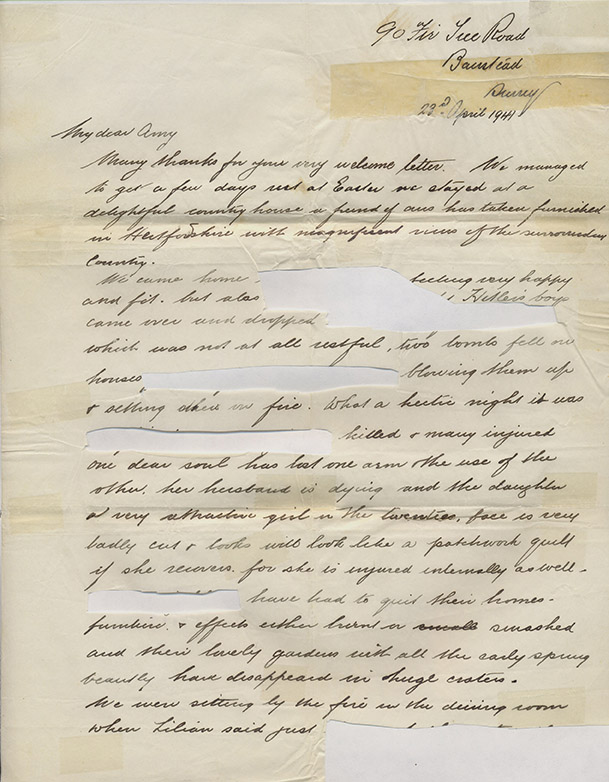 90 Fir Tree Road
Banstead
Surrey
23rd April 1941
My dear Amy
Many thanks for your very welcome letter. We managed
to get a few days rest at Easter we stayed at a
delightful country house a friend of ours has taken furnished
in Hertfordshire with magnificent views of the surrounding
country.
We came home feeling very happy
and fit. but alas Hitler's boys
came over and dropped
which was not at all restful, two bombs fell on
houses blowing them up
& setting them on fire. What a hectic night it was
killed & many injured
one dear soul has lost one arm & the use of the
other, her husband is dying and the daughter
a very attractive girl in the twenties, face is very
badly cut & looks will look like a patchwork quilt
if she recovers. for she is injured internally as well.
have had to quit their homes.
furniture & effects either burnt or smashed
and their lovely gardens with all the early spring
beauty have disappeared in huge craters.
We were sitting by the fire in the dining room
when Lilian said just